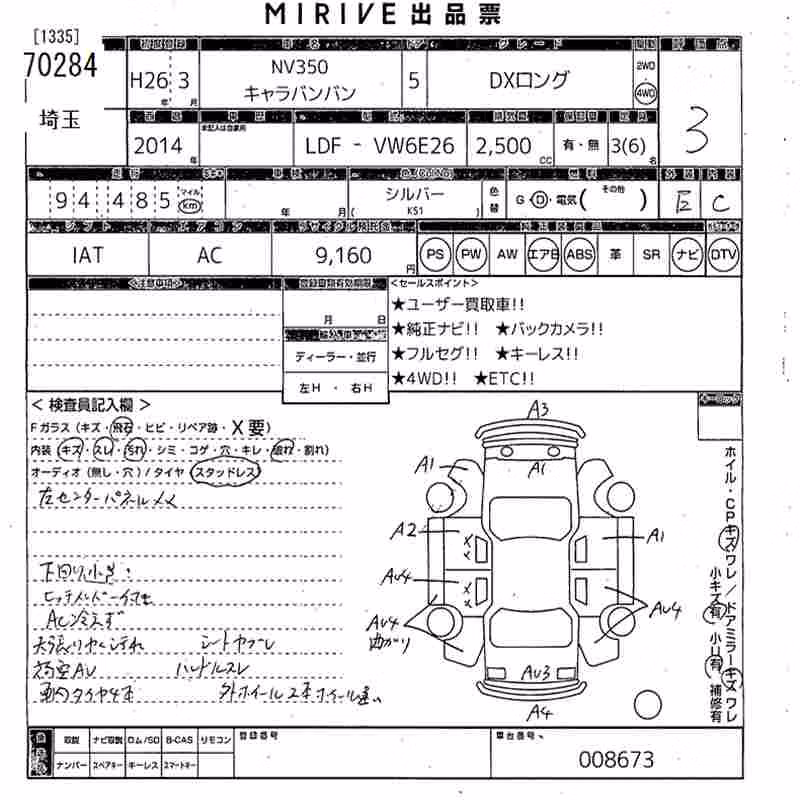 MIRIVE出品票
[1335]
70284
埼玉
H26 年 3 月
NV350
キャラバンバン
5
DXロング
2WD
・
4WD
3
2014 年
未記入は自家用
LDF - VW6E26
2,500 CC
有・無
3(6) 名
94,485
マイル
km
年 月
シルバー
( KS1 )
色替
G・D・電気( その他 )
E
C
シフト
エアコン
IAT
AC
9,160 円
PS
PW
AW
エアB
ABS
革
SR
ナビ
DTV
<注意事項>
登録車検有効期限
月 日
ディーラー・並行
左H ・ 右H
<セールスポイント>
★ユーザー買取車!!
★純正ナビ!! ★バックカメラ!!
★フルセグ!! ★キーレス!!
★4WD!! ★ETC!!
<検査員記入欄>
Fガラス(キズ・飛石・ヒビ・リペア跡・X要)
内装(キズ・スレ・汚れ・シミ・コゲ・穴・キレ・破れ・割れ)
オーディオ(無し・穴)/タイヤ(スタッドレス)
左センターパネルXX
下回り小サビ
AC冷えず
天張りヤセ汚れ シートヤブレ
ハンドルスレ
車内タイヤ4本 外ホイール2本ホイール違い
A3
A1
A1
A2
A1
AU4
AU4
AU4
曲がり
AU3
A4
X
X
X
X
ホイル・CPキズワレ/ドアミラーキズワレ
小キズ有 小U有 補修有
取説
ナビ取説
ロム/SD
B-CAS
リモコン
ナンバー
スペアキー
キーレス
スマートキー
登録番号
車台番号
008673